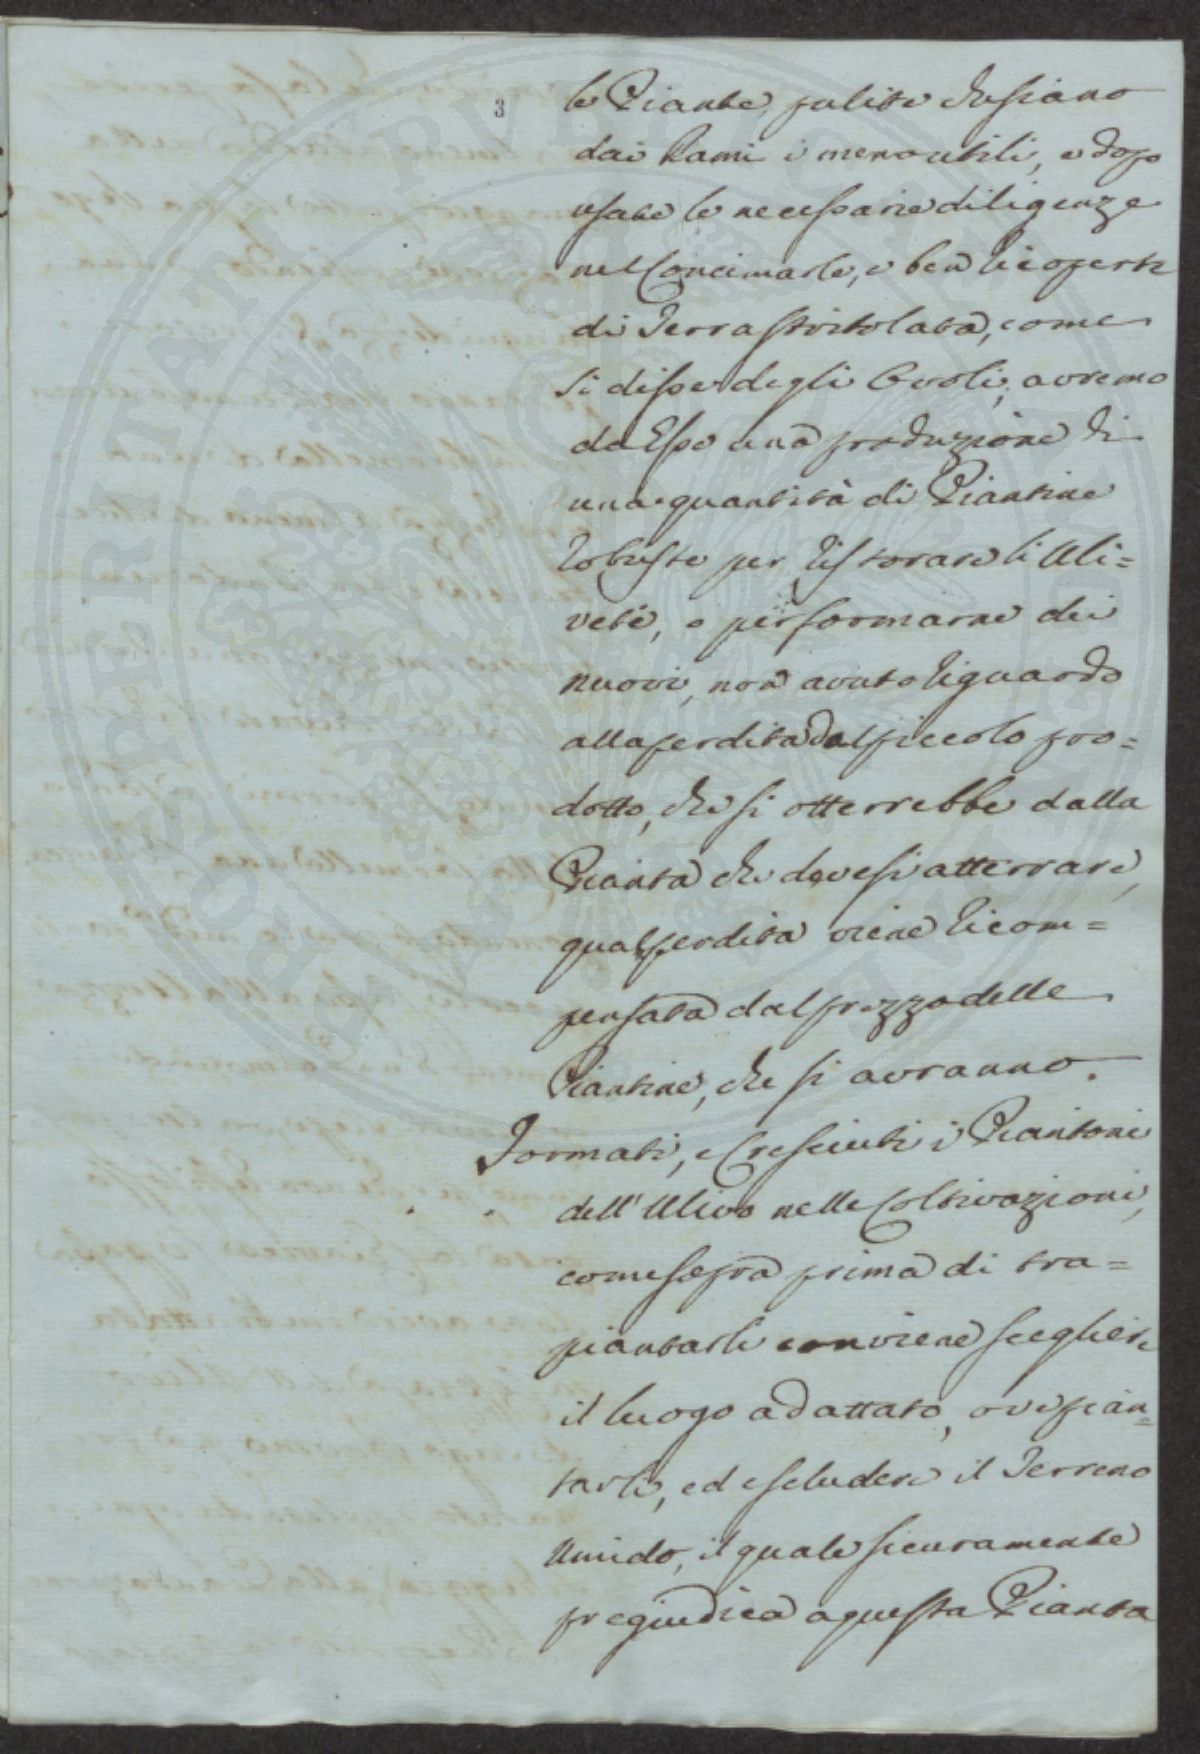 3
le Piante, pulite che siano
dai Rami i meno utili, e dopo
usate le necessarie diligenze
nel Concimarle, e ben ricoperte
di Terra stritolata, come
si disse degli Ovoli; avremo
da Esse una produzione di
una quantità di Piantine
robuste per ristorare li Uli=
veti, o per formarne dei
nuovi, non avuto riguardo
alla perdita dal piccolo pro=
dotto, che si otterrebbe dalla
Pianta che devesi atterrare,
qual perdita viene ricom=
pensata dal prezzo delle
Piantine, che si avranno.
Formati, e Cresciuti i Piantoni
dell'Ulivo nelle Coltivazioni,
come sopra prima di tra=
piantarli conviene scegliere
il luogo adattato, ove pian=
tarli, ed escludere il Terreno
Umido, il quale sicuramente
pregiudica a questa Pianta
PROSPERITATI PVBLICAE AVGENDAE